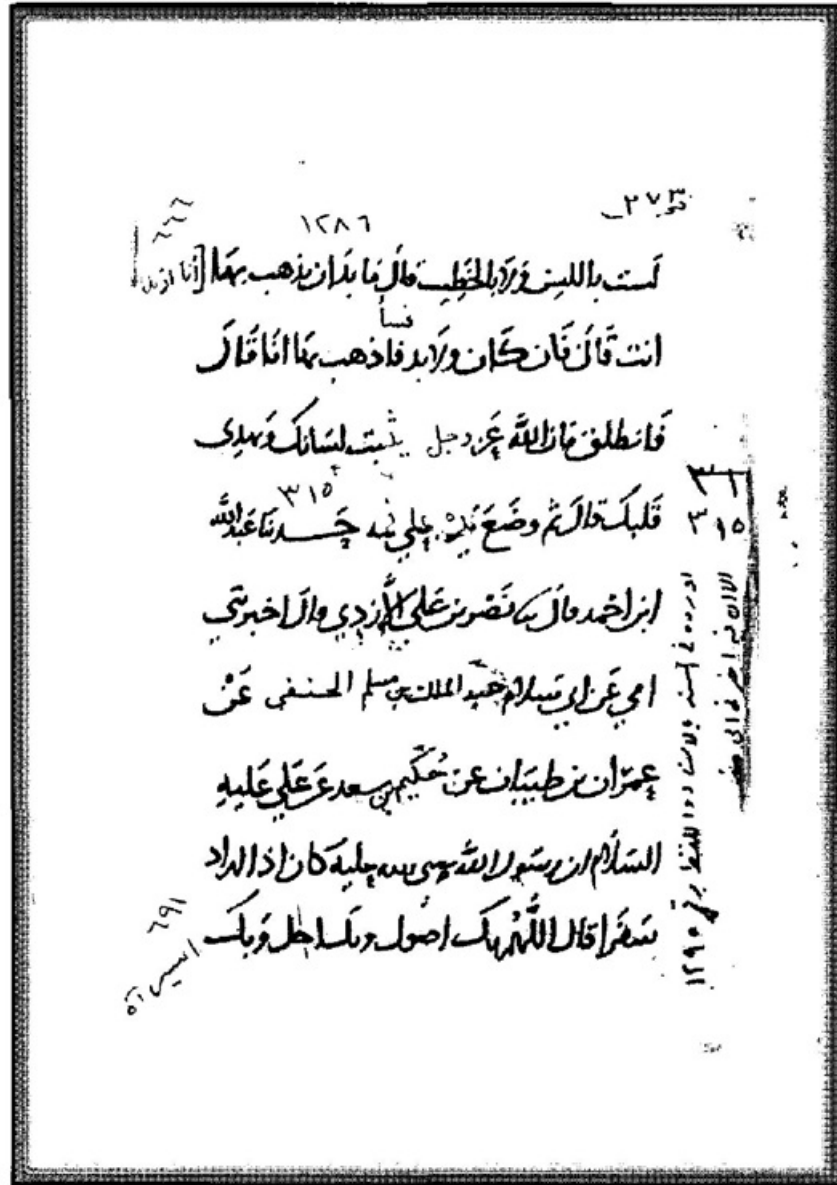 ٢٧٣
١٢٨٦
٦٦٦
لست باللسن ولا بالخطيب قال ما بد ان يذهب بها [أنا او
فسأ
انت قال فان كان ولا بد فاذهب بها انا قال
فانطلق فان الله عز وجل يثبت لسانك ويهدى
٣١٥
قلبك قال ثم وضع يده على فيه حدثنا عبد الله
ابن احمد قال نا نصر بن علي الأزدي قال اخبرني
ابي عن ابي سلام عبد الملك بن مسلم الحنفي عن
عمران بن ظبيان عن حكيم بن سعد عن علي عليه
السلام ان رسول الله صلى الله عليه كان اذا اراد
سفرا قال اللهم بك اصول وبك احل وبك
٦٩١
اسير اه
٣١
٣١٥
اورده في المسند بالاسناد واللفظ برقم ١٢٩٥
الا ان فيه